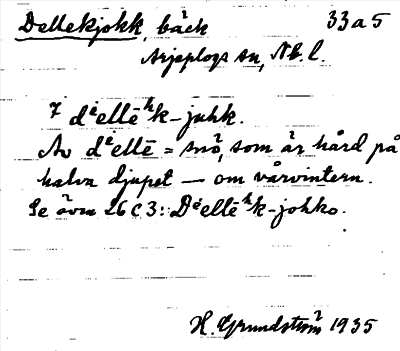 Dellekjokk, bäck 33a5
Arjeplogs sn, Nb. l.
7 dⁱellēʰk-juhk.
Av dⁱellē = snö, som är hård på
halva djupet — om vårvintern.
Se även 26C3: Dⁱellēʰk-johko.
H. Grundström 1935